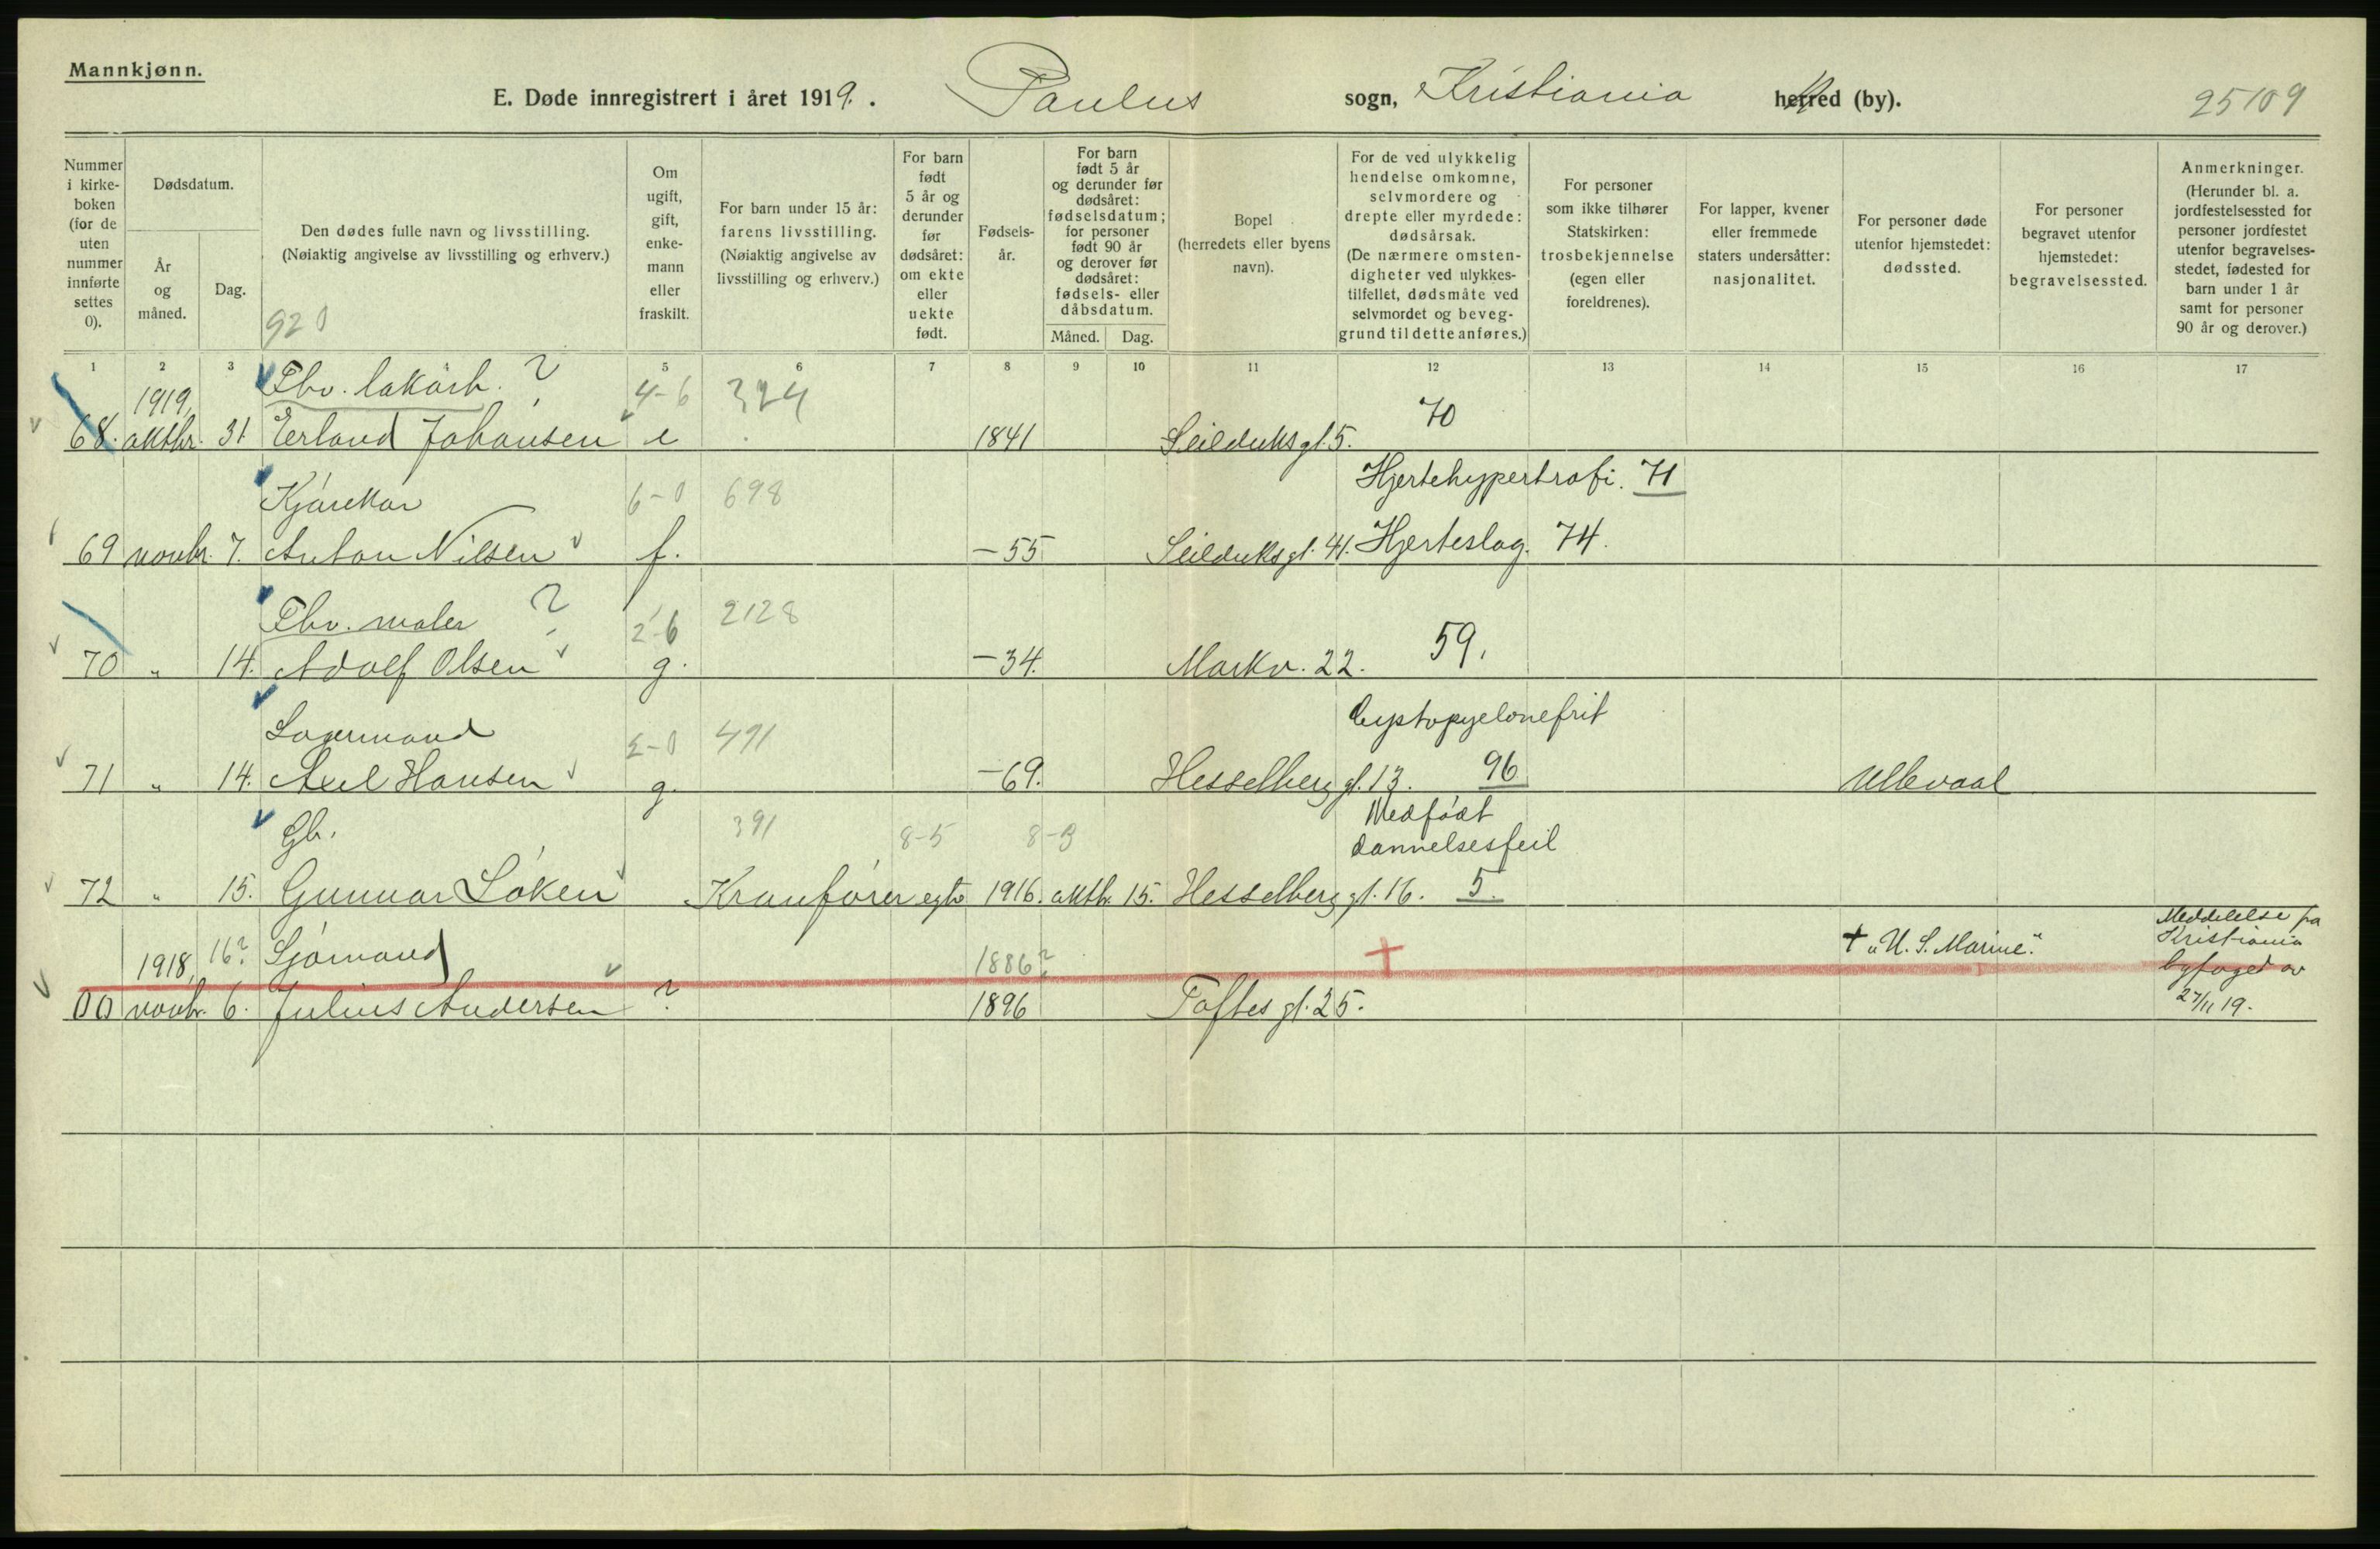 Mannkjønn.
E. Døde innregistrert i året 1919. Paulus sogn, Kristiania herred (by). 25109
Nummer i kirkeboken (for de uten nummer innførte settes 0).
Dødsdatum.
År og måned.
Dag.
Den dødes fulle navn og livsstilling.
(Nøiaktig angivelse av livsstilling og erhverv.)
920
Om ugift, gift, enkemann eller fraskilt.
For barn under 15 år: farens livsstilling.
(Nøiaktig angivelse av livsstilling og erhverv.)
For barn født 5 år og derunder før dødsåret: om ekte eller uekte født.
Fødselsår.
For barn født 5 år og derunder før dødsåret: fødselsdatum; for personer født 90 år og derover før dødsåret: fødsels- eller dåbsdatum.
Måned. Dag.
Bopel (herredets eller byens navn).
For de ved ulykkelig hendelse omkomne, selvmordere og drepte eller myrdede: dødsårsak.
(De nærmere omstendigheter ved ulykkestilfellet, dødsmåte ved selvmordet og beveggrund til dette anføres.)
For personer som ikke tilhører Statskirken: trosbekjennelse (egen eller foreldrenes).
For lapper, kvener eller fremmede staters undersåtter: nasjonalitet.
For personer døde utenfor hjemstedet: dødssted.
For personer begravet utenfor hjemstedet: begravelsessted.
Anmerkninger.
(Herunder bl. a. jordfestelsessted for personer jordfestet utenfor begravelsesstedet, fødested for barn under 1 år samt for personer 90 år og derover.)
1 2 3 5 6 7 8 9 10 11 12 13 14 15 16 17
1919, Fhv. ? 4-6 324 70
68. oktbr. 31. Erland Johansen e 1841 Seilduksgt. 5.
Kjørekar 6-0 698 Hjertehypertrofi. 71
69 novbr. 7. Anton Nilsen f. -55 Seilduksgt. 41. Hjerteslag. 74.
Fhv. maler ? 2-6 2128
70 " 14. Adolf Olsen g. -34. Markv. 22. 59.
Lagermand 2-0 491 Cystopyelonefrit
71 " 14. Axel Hansen g. -69. Hesselberg gt. 13. 96 Ullevaal
Gb. 391 8-5 8-3 Medfødt dannelsesfeil
72 " 15. Gunnar Løken Kranfører egte 1916. oktb. 15. Hesselberg gt. 16. 5.
1918, 16? Sjømand 1886? + + "U. S. Marine." Meddelelse fra Kristiania byfoged av 27/11 19.
00 novbr. 6. Julius Andersen ? 1896 Toftes gt. 25.